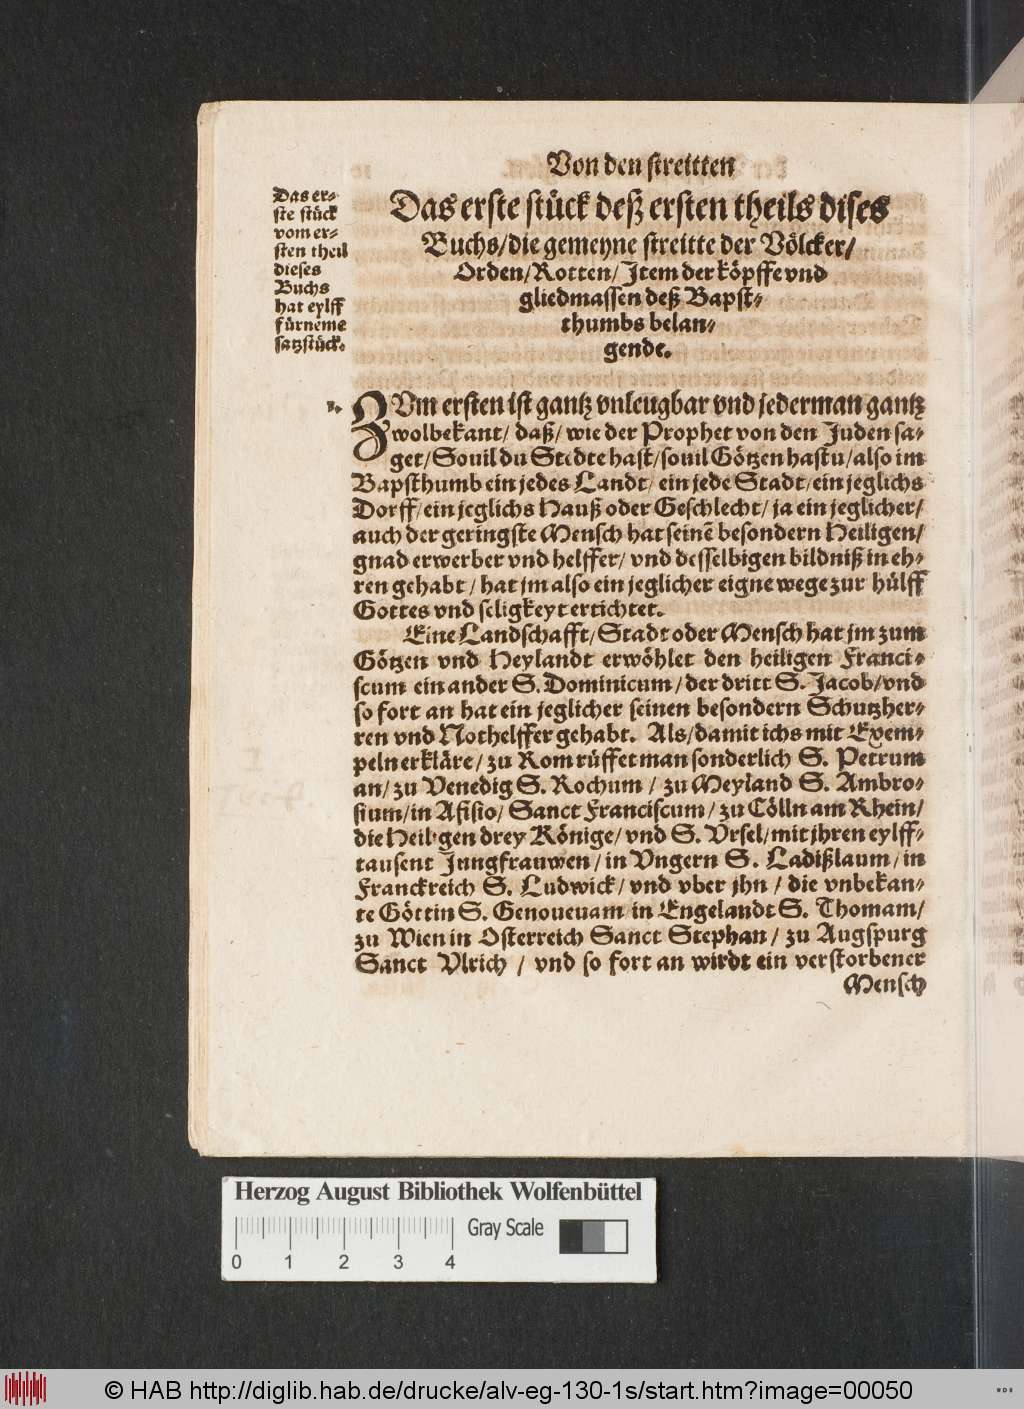 Von den streitten
Das er-
ste stück
vom er-
sten theil
dieses
Buchs
hat eylff
fürneme
satzstück.
Das erste stück deß ersten theils dises
Buchs/die gemeyne streitte der Völcker/
Orden/Rotten/Item der köpffe vnd
gliedmassen deß Bapst-
thumbs belan-
gende.
1.
ZVm ersten ist gantz vnleugbar vnd jederman gantz
wolbekant/ daß/ wie der Prophet von den Juden sa-
get/Souil du Stedte hast/souil Götzen hastu/also im
Bapsthumb ein jedes Landt/ ein jede Stadt/ein jeglichs
Dorff/ein jeglichs Hauß oder Geschlecht/ ja ein jeglicher/
auch der geringste Mensch hat seinē besondern Heiligen/
gnad erwerber vnd helffer/ vnd desselbigen bildniß in eh-
ren gehabt/ hat jm also ein jeglicher eigne wege zur hülff
Gottes vnd seligkeyt ertichtet.
Eine Landschafft/Stadt oder Mensch hat jm zum
Götzen vnd Heylandt erwöhlet den heiligen Franci-
scum ein ander S. Dominicum/der dritt S. Jacob/vnd
so fort an hat ein jeglicher seinen besondern Schutzher-
ren vnd Nothelffer gehabt. Als/damit ichs mit Exem-
peln erkläre/ zu Rom rüffet man sonderlich S. Petrum
an/ zu Venedig S. Rochum / zu Meyland S. Ambro-
sium/in Asisio/ Sanct Franciscum/ zu Cölln am Rhein/
die Heiligen drey Könige/ vnd S. Vrsel/mit jhren eylff-
tausent Jungfrauwen/ in Vngern S. Ladißlaum/in
Franckreich S. Ludwick/ vnd vber jhn / die vnbekan-
te Göttin S. Genoueuam/in Engelandt S. Thomam/
zu Wien in Osterreich Sanct Stephan/ zu Augspurg
Sanct Vlrich / vnd so fort an wirdt ein verstorbener
Mensch
Herzog August Bibliothek Wolfenbüttel
Gray Scale
0 1 2 3 4
© HAB http://diglib.hab.de/drucke/alv-eg-130-1s/start.htm?image=00050